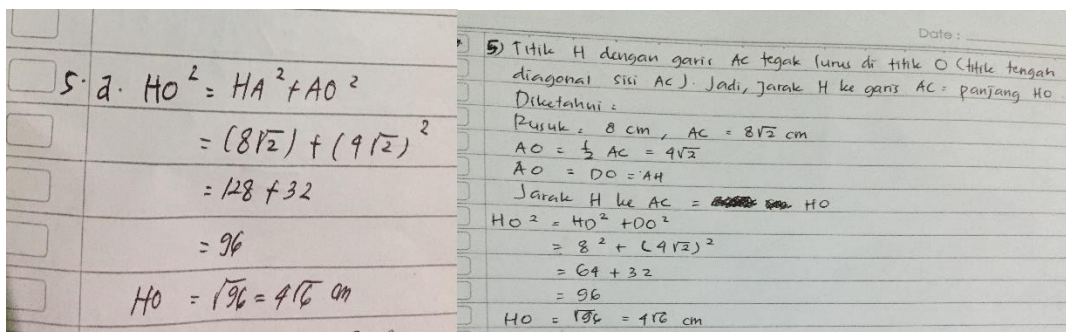 5. a. HO² = HA² + AO²
= (8√2) + (4√2)²
= 128 + 32
= 96
HO = √96 = 4√6 cm
Date :
5) Titik H dengan garis AC tegak lurus di titik O (titik tengah
diagonal sisi AC). Jadi, jarak H ke garis AC = panjang HO
Diketahui :
Rusuk = 8 cm, AC = 8√2 cm
AO = ½ AC = 4√2
AO = DO = AH
Jarak H ke AC = HO
HO² = HD² + DO²
= 8² + (4√2)²
= 64 + 32
= 96
HO = √96 = 4√6 cm